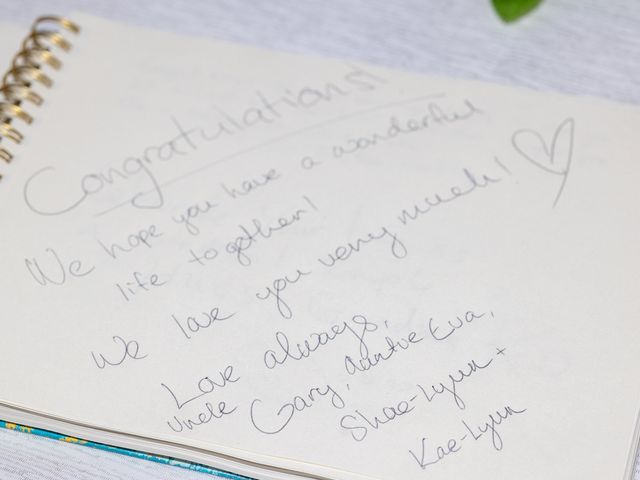 Congratulations!
We hope you have a wonderful
life together!
We love you very much!
Love always,
Uncle Gary, Auntie Eva,
Shae-Lynn +
Kae-Lynn